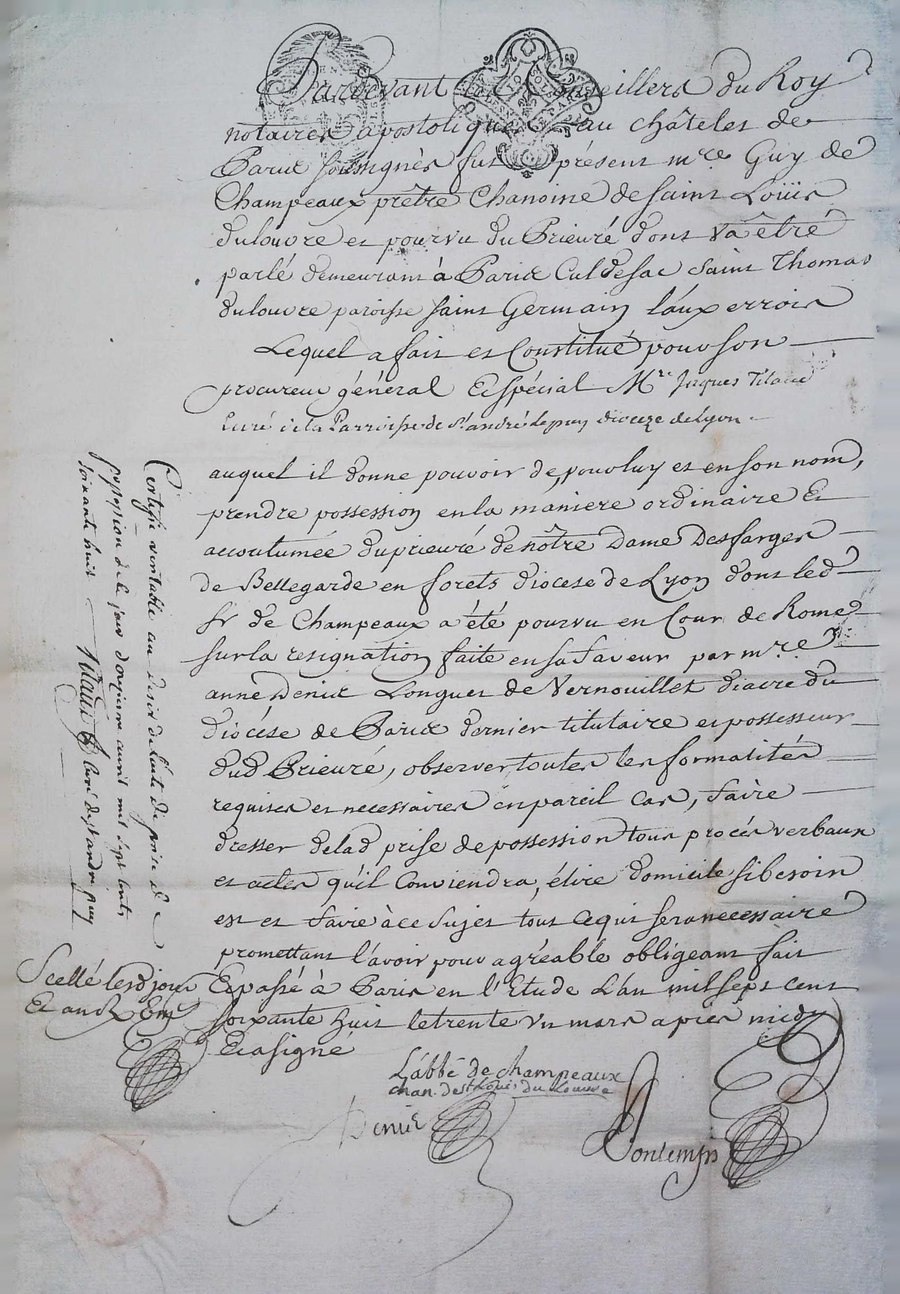 Pardevant les Conseillers du Roy
notaires apostoliques au châtelet de
Paris soussignés fut présent mre Guy de
Champeaux prêtre Chanoine de Saint Loüis
du louvre et pourvu du Prieuré dont va être
parlé demeurant à Paris Cul de sac Saint Thomas
du louvre paroisse Saint Germain Lauxerrois
Lequel a fait et Constitué pour son
procureur général Et spécial Mre Jaques Titaud
Curé de la Parroisse de St andré le puy dioceze de Lyon
auquel il donne pouvoir de, pour luy et en son nom,
prendre possession en la maniere ordinaire Et
accoutumée du prieuré de nôtre Dame Desfarges
de Bellegarde en forets diocese de Lyon dont led
Sr de Champeaux a été pourvu en Cour de Rome
sur la resignation faite en sa faveur par mre
anne Denis Longuet de Vernouillet diacre du
diocése de Paris dernier titulaire et possesseur
dud Prieuré, observer toutes les formalités
requises et necessaires en pareil cas, faire
dresser de lad prise de possession tous procés verbaux
et actes qu'il Conviendra, élire domicile si besoin
est et faire à ce sujet tout ce qui sera necessaire
promettant l'avoir pour agréable obligeant fait
Et passé à Paris en l'Etude L'an mil sept cent
soixante huit le trente un mars apres midy
Et a signé
L'abbé de champeaux
chan. de st Louis du Louvre
Denis
Bontemps
Certifié veritable au desir de l'acte de prise de
possession de ce jour d'onzieme avril mil sept cents
soixante huit Titaud Curé de st andré puy
Scellé lesd jour
Et an